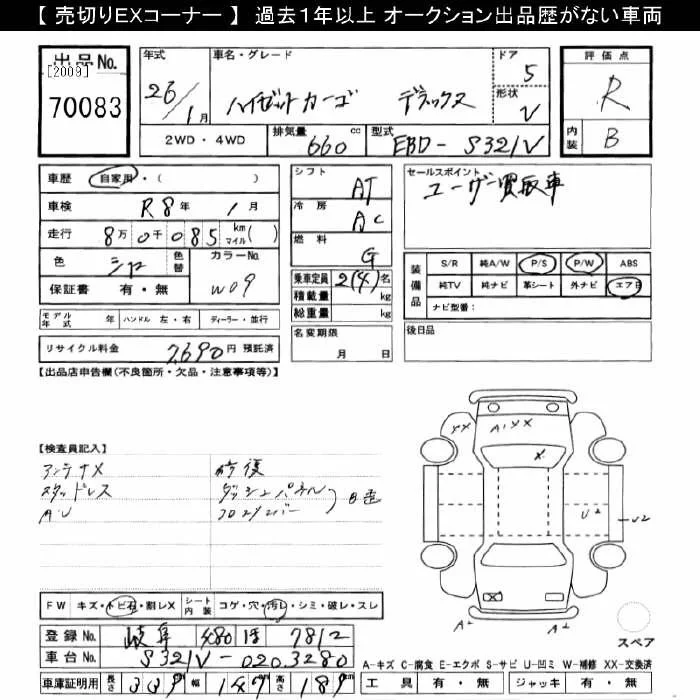 【 売切りEXコーナー 】 過去1年以上 オークション出品歴がない車両
出品No. [2009] 70083
年式 26/1月
車名・グレード ハイゼットカーゴ デラックス
ドア 5
形状 V
2WD・4WD
排気量 660 cc
型式 EBD-S321V
評価点 R
内装 B
車歴 自家用・( )
車検 R8年 1月
走行 8万0千085 km マイル( )
色 シロ 色替
カラーNo. W09
保証書 有・無
モデル年式 年 ハンドル 左・右 ディーラー・並行
リサイクル料金 7,690円 預託済
シフト AT
冷房 AC
燃料 G
乗車定員 2(4)名
積載量 kg
総重量 kg
名変期限 月 日
セールスポイント
ユーザー買取車
装備品
S/R 純A/W P/S P/W ABS
純TV 純ナビ 革シート 外ナビ エアB
ナビ型番:
後日品
【出品店申告欄(不良箇所・欠品・注意事項等)】
【検査員記入】
アンテナX 修復
スタッドレス ダッシュパネル
A,U フロアメンバー
XX A1 XX
X
U2
U2
X
A2 A2
FW キズ・トビ石・割レX シート内装 コゲ・穴・汚レ・シミ・破レ・スレ
登録No. 岐阜 480 7812
車台No. S321V-0203280
車庫証明用 長さ 339 幅 147 高さ 189
スペア
A-キズ C-腐食 E-エクボ S-サビ U-凹ミ W-補修 XX-交換済
工具 有・無 ジャッキ 有・無